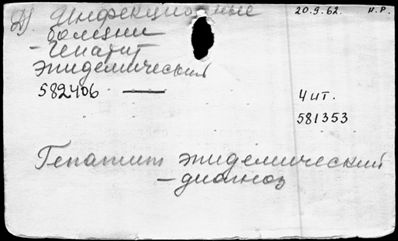 Д). Инфекционные
20.9.62. Н.Р.
болезни
- Гепатит
эпидемический
582406 —
Чит.
581353
Гепатит эпидемический
- диагноз